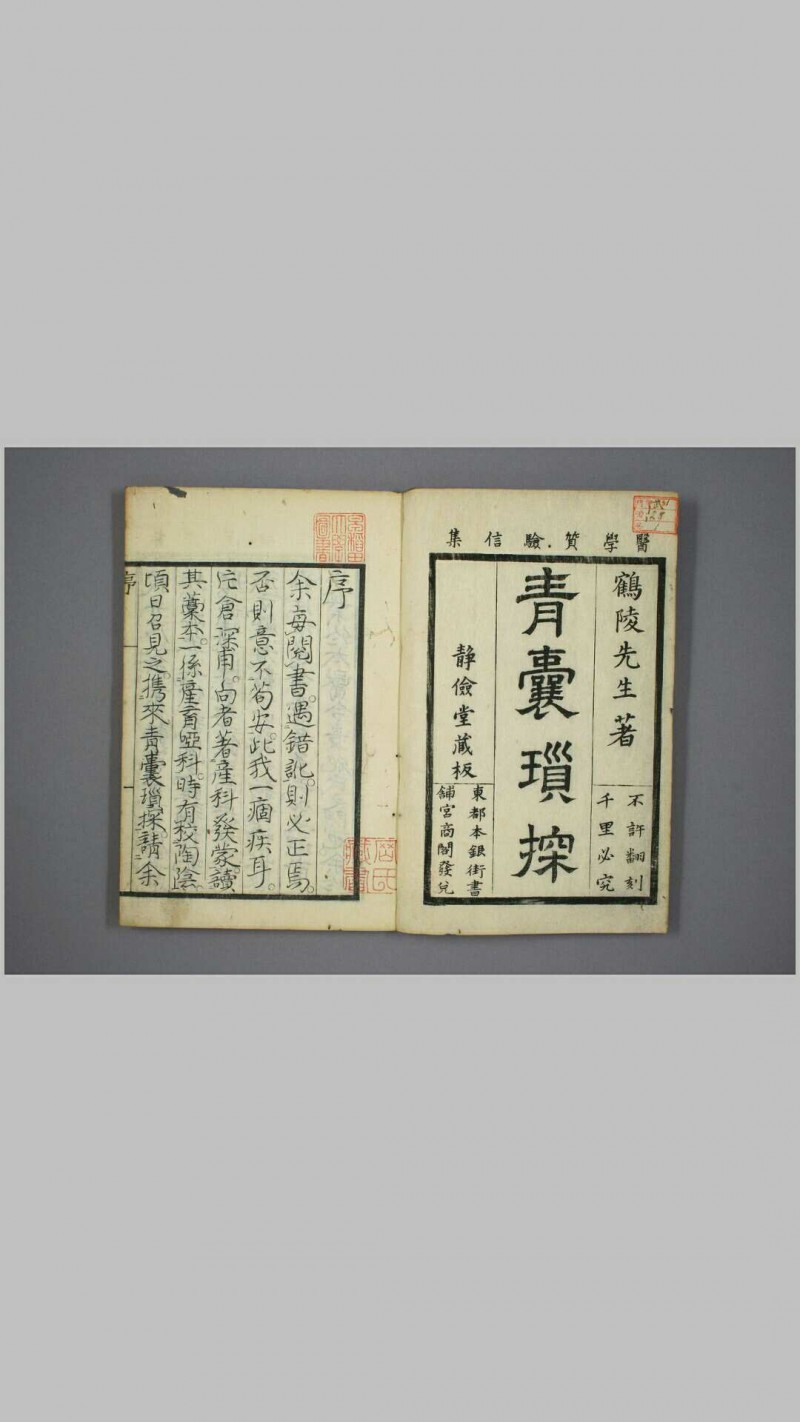 醫學質驗信集
鶴陵先生著
不許翻刻
千里必究
青囊瑣探
靜儉堂藏板
東都本銀街書
舖宮商閣發兌
序
余每閱書遇錯訛則必正焉
否則意不苟安此我一痼疾耳
倉深甫向者著產科發蒙讀
其藁本一係產育啞科時有校陶陰
頃日召見之携來青囊瑣探請余
序